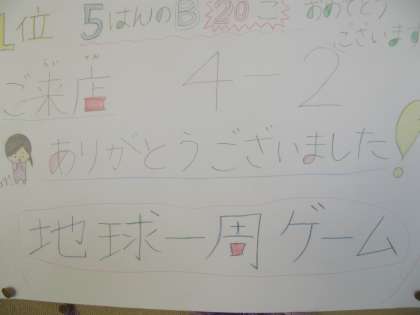 1位 5はんのB 20こ おめでとう
ございます
ご来店 4-2
ありがとうございました
地球一周ゲーム